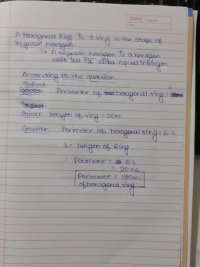 A Hexagonal Ring is a ring in the shape of
regular hexagon
A regular hexagon is a hexagon
with all its sides equal in length
According to the question:
Perimeter of hexagonal ring =
Given: length of ring = 20m.
Solution: Perimeter of hexagonal ring = 6·L
L = Length of Ring
∴ Perimeter = 6·L
= 20×6
Perimeter = 120m
of hexagonal ring